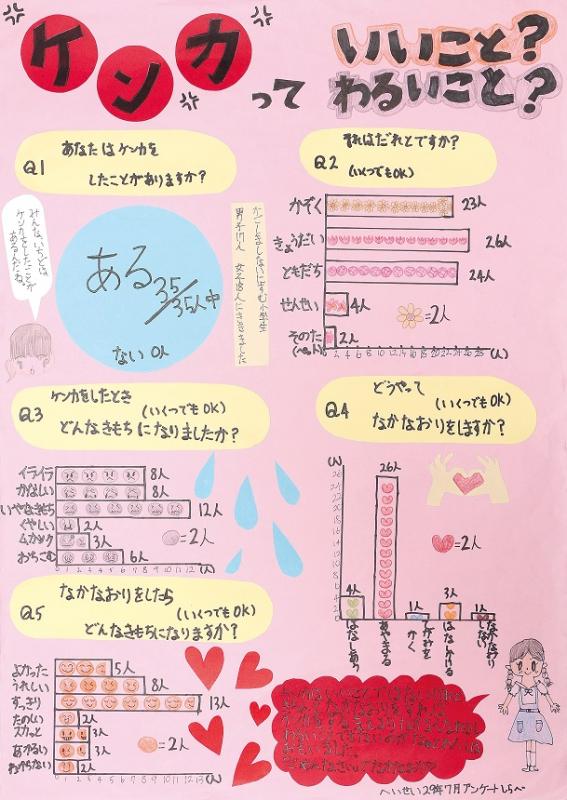 ケンカって
いいこと?
わるいこと?
Q1
あなたはケンカを
したことがありますか?
みんな、いちどは、
ケンカをしたことが
あるんだね。
ある35/35人中
ない 0人
Q2
それはだれとですか?
(いくつでもOK)
かぞく 23人
きょうだい 26人
ともだち 24人
せんせい 4人
そのた 2人
=2人
(人)
Q3
ケンカをしたとき
(いくつでもOK)
どんなきもちになりましたか?
イライラ 8人
かなしい 8人
いやなきもち 12人
くやしい 2人
ムカツク 3人
おちこむ 6人
=2人
0 1 2 3 4 5 6 7 8 9 10 11 12 (人)
Q4
どうやって
(いくつでもOK)
なかなおりをしますか?
(人)
4人
26人
1人
3人
1人
はなしあう
あやまる
てがみを
かく
はなしかける
なかなおり
しない
=2人
Q5
なかなおりをしたら
(いくつでもOK)
どんなきもちになりますか?
よかった 5人
うれしい 8人
すっきり 13人
たのしい 2人
スカッと 3人
あかるい 3人
わからない 2人
=2人
0 1 2 3 4 5 6 7 8 9 10 11 12 13 (人)
おもいました。
へいせい29年7月アンケートしらべ